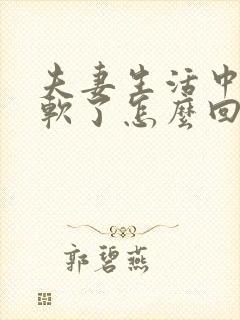 夫妻生活中
軟了怎麼回
郭碧燕